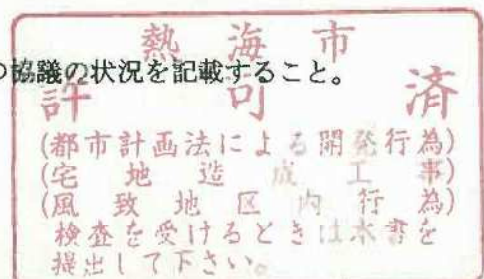 熱海市
の協議の状況を記載すること。
許可済
(都市計画法による開発行為)
(宅地造成工事)
(風致地区内行為)
検査を受けるときは本書を
提出して下さい。